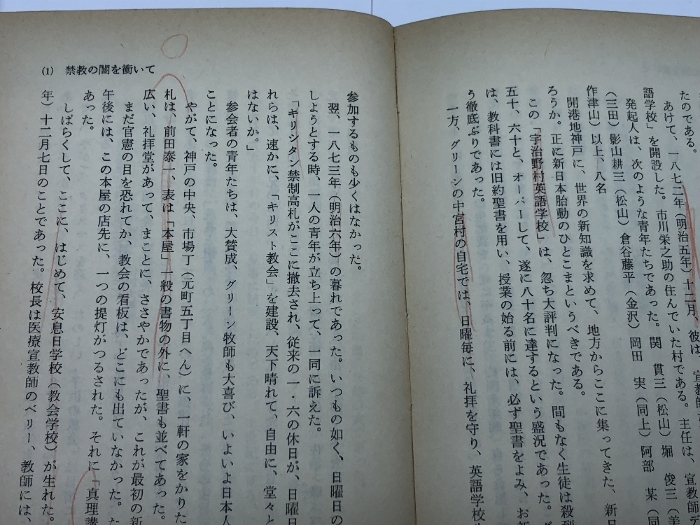 たのである。
あけて、一八七二年(明治五年)十二月、彼は、宣教師
語学校」を開設した。市川栄之助の住んでいた村である。主任は、宣教師
発起人は、次のような青年たちであった。関 貫三(松山)堀 俊三(美
(三田)影山耕三(松山)倉谷藤平(金沢)岡田 実(同上)阿部 某(同
作津山)以上、八名
開港地神戸に、世界の新知識を求めて、地方からここに集ってきた、新日
ろうか。正に新日本胎動のひとこまというべきである。
この「宇治野村英語学校」は、忽ち大評判になった。間もなく生徒は殺到
五十、六十と、オーバーして、遂に八十名に達するという盛況であった。グ
は、教科書には旧約聖書を用い、授業の始る前には、必ず聖書をよみ、お祈
う徹底ぶりであった。
一方、グリーンの中宮村の自宅では、日曜毎に、礼拝を守り、英語学校
参加するものも少くはなかった。
翌、一八七三年(明治六年)の暮れであった。いつもの如く、日曜日の
しようとする時、一人の青年が立ち上って、一同に訴えた。
「キリシタン禁制高札がここに撤去され、従来の一・六の休日が、日曜日
れらは、速かに、「キリスト教会」を建設、天下晴れて、自由に、堂々と
はないか。」
参会者の青年たちは、大賛成、グリーン牧師も大喜び、いよいよ日本人
ことになった。
やがて、神戸の中央、市場丁(元町五丁目へん)に、一軒の家をかりた
札は、前田泰一、表は「本屋」一般の書物の外に、聖書も並べてあった。
広い、礼拝堂があって、まことに、ささやかであったが、これが最初の新
まだ官憲の目を恐れてか、教会の看板は、どこにも出ていなかった。た
午後には、この本屋の店先に、一つの提灯がつるされた。それに「真理講
あった。
しばらくして、ここに、はじめて、安息日学校(教会学校)が生れた。
年)十二月七日のことであった。校長は医療宣教師のベリー、教師には、
(1) 禁教の闇を衝いて